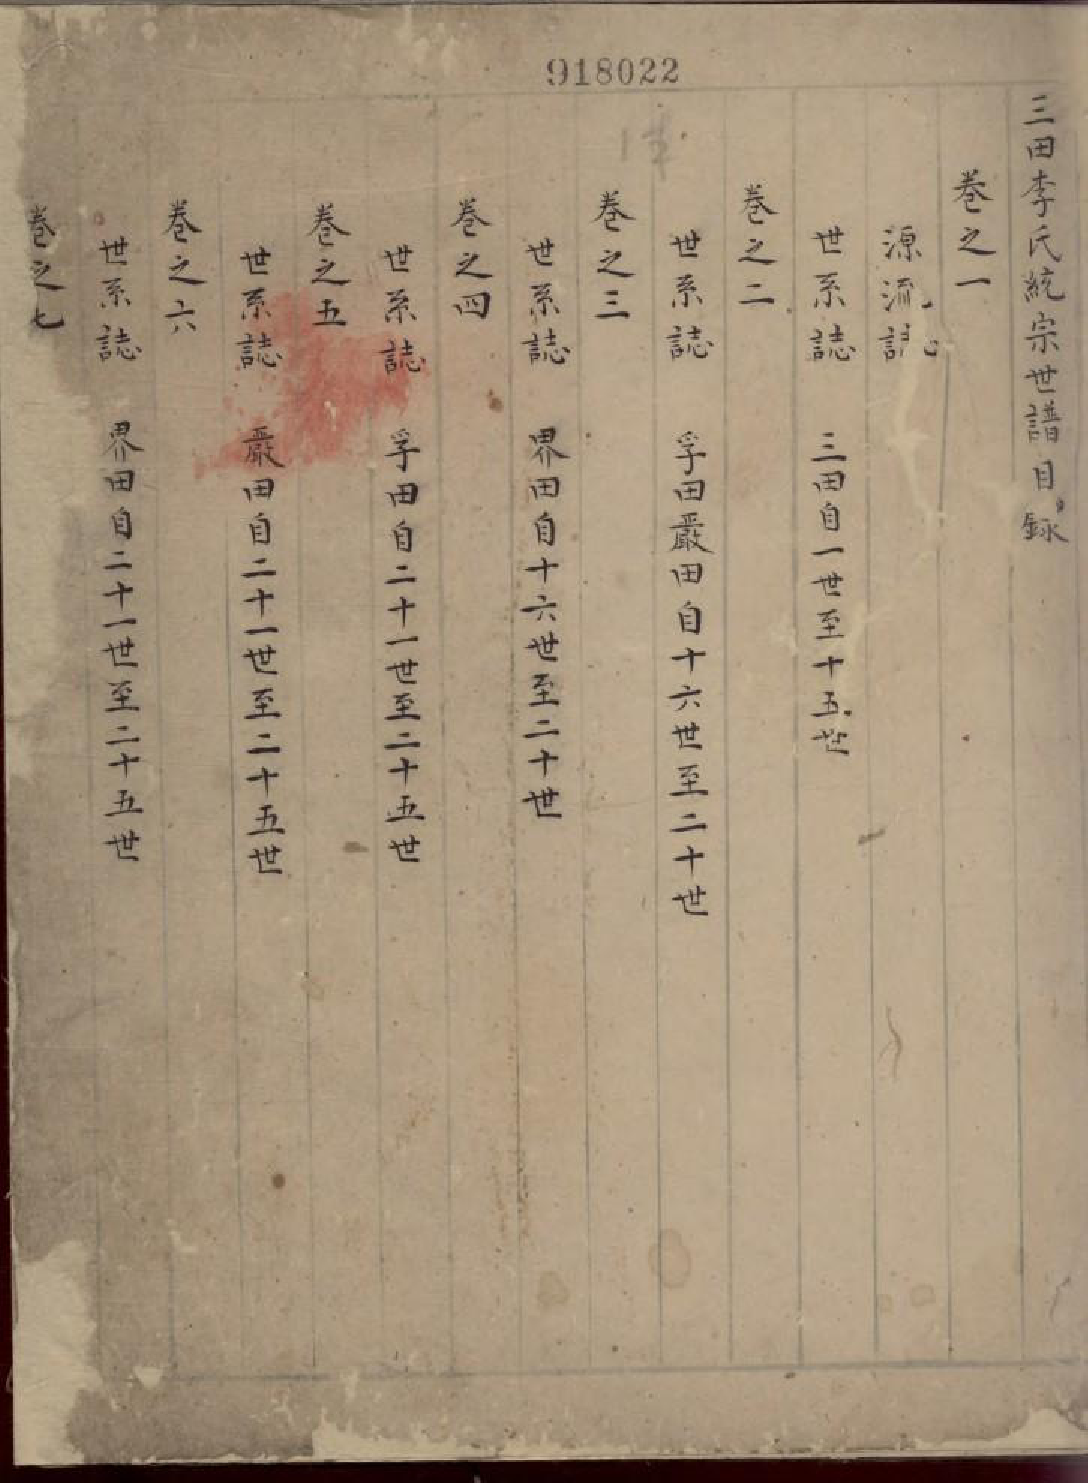 918022
三田李氏統宗世譜目録
卷之一
源流誌
世系誌 三田自一世至十五世
卷之二
世系誌 孚田嚴田自十六世至二十世
卷之三
世系誌 界田自十六世至二十世
卷之四
世系誌 孚田自二十一世至二十五世
卷之五
世系誌 嚴田自二十一世至二十五世
卷之六
世系誌 界田自二十一世至二十五世
卷之七